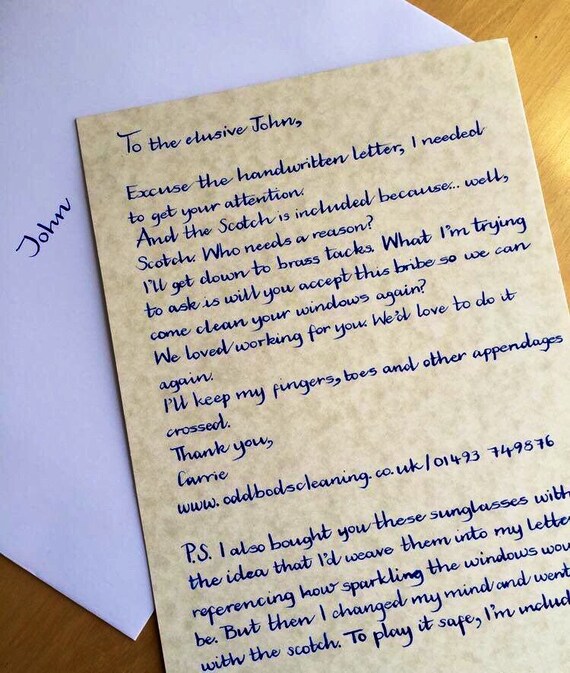 John
To the elusive John,
Excuse the handwritten letter, I needed
to get your attention.
And the Scotch is included because... well,
Scotch. Who needs a reason?
I'll get down to brass tacks. What I'm trying
to ask is will you accept this bribe so we can
come clean your windows again?
We loved working for you. We'd love to do it
again.
I'll keep my fingers, toes and other appendages
crossed.
Thank you,
Carrie
www.oddbodscleaning.co.uk/01493 749876
P.S. I also bought you these sunglasses with
the idea that I'd weave them into my lette
referencing how sparkling the windows wou
be. But then I changed my mind and went
with the scotch. To play it safe, I'm includ